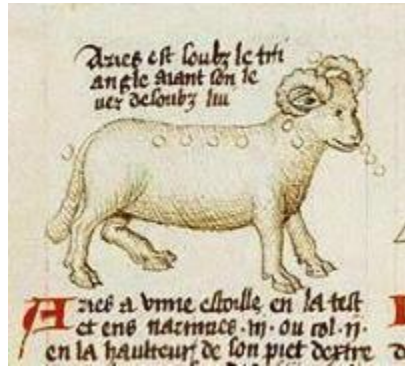 Aries est soubz le tri
angle aiant son le
ver desoubz lui
Aries a vnne estoille en la test
et ens narinnes .iij. ou col .ij.
en la haulteur de son piet dextre